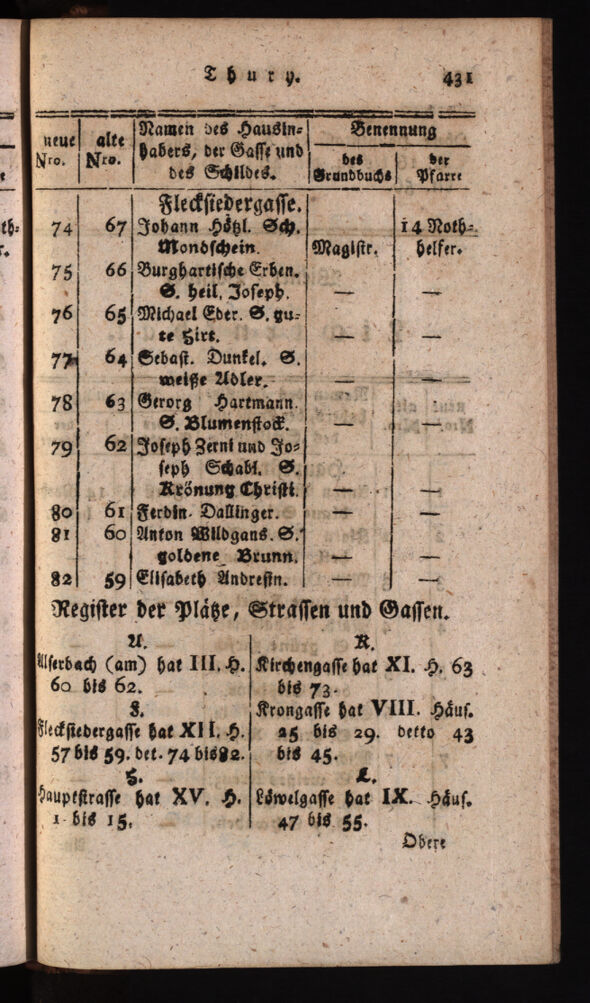 Thury. 431
neue Nro. | alte Nro. | Namen des Hausin-habers, der Gasse und des Schildes. | Benennung
des Grundbuchs | der Pfarre
Flecksiedergasse.
74 | 67 | Johann Hötzl. Sch. | 14 Noth-
Mondschein. | Magistr. | helfer.
75 | 66 | Burghartische Erben.
S. heil. Joseph. | — | —
76 | 65 | Michael Eder. S. gu-
te Hirt. | — | —
77 | 64 | Sebast. Dunkel. S.
weiße Adler. | — | —
78 | 63 | Gerorg Hartmann.
S. Blumenstock. | — | —
79 | 62 | Joseph Zernt und Jo-
seph Schabl. S.
Krönung Christi. | — | —
80 | 61 | Ferdin. Dallinger. | — | —
81 | 60 | Anton Wildgans. S.
goldene Brunn. | — | —
82 | 59 | Elisabeth Andrestn. | — | —
Register der Plätze, Strassen und Gassen.
A.
Alserbach (am) hat III. H.
60 bis 62.
F.
Flecksiedergasse hat XII. H.
57 bis 59. det. 74 bis 82.
H.
Hauptstrasse hat XV. H.
1 bis 15.
K.
Kirchengasse hat XI. H. 63
bis 73.
Krongasse hat VIII. Häus.
25 bis 29. detto 43
bis 45.
L.
Löwelgasse hat IX. Häus.
47 bis 55.
Obere